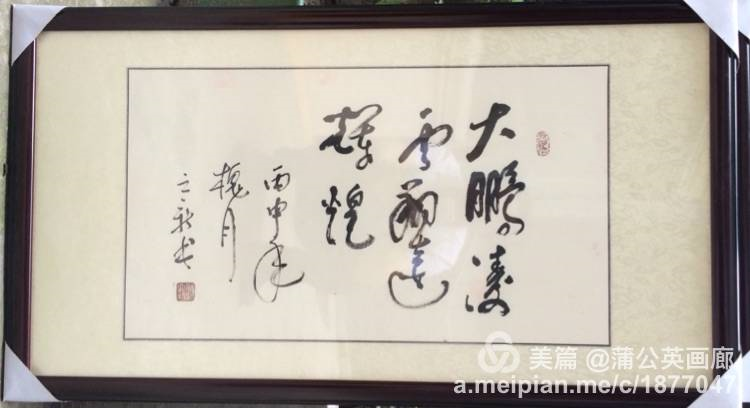 大鹏凌
云达
辉煌
丙申年
槐月
美篇 @蒲公英画廊
a.meipian.me/c/1877047